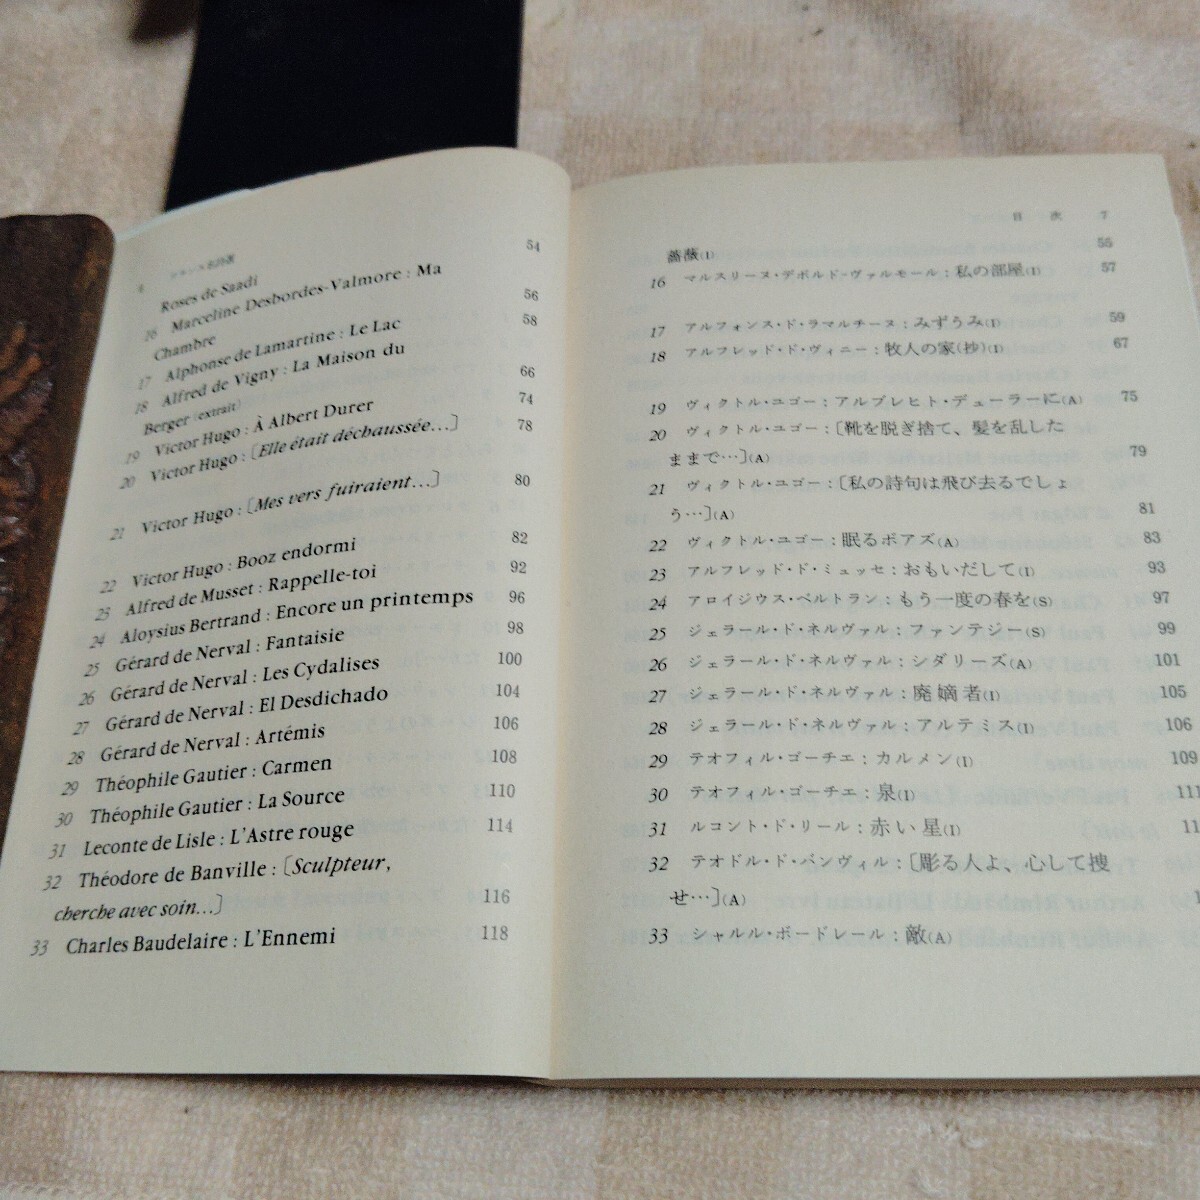 フランス名詩選
Roses de Saadi 54
16 Marceline Desbordes-Valmore : Ma
Chambre 56
17 Alphonse de Lamartine : Le Lac 58
18 Alfred de Vigny : La Maison du
Berger (extrait) 66
19 Victor Hugo : À Albert Durer 74
20 Victor Hugo : [Elle était déchaussée...] 78
21 Victor Hugo : [Mes vers fuiraient...] 80
22 Victor Hugo : Booz endormi 82
23 Alfred de Musset : Rappelle-toi 92
24 Aloysius Bertrand : Encore un printemps 96
25 Gérard de Nerval : Fantaisie 98
26 Gérard de Nerval : Les Cydalises 100
27 Gérard de Nerval : El Desdichado 104
28 Gérard de Nerval : Artémis 106
29 Théophile Gautier : Carmen 108
30 Théophile Gautier : La Source 110
31 Leconte de Lisle : L'Astre rouge 114
32 Théodore de Banville : [Sculpteur,
cherche avec soin...] 116
33 Charles Baudelaire : L'Ennemi 118
目次 7
薔薇(I) 55
16 マルスリーヌ・デボルド=ヴァルモール：私の部屋(I) 57
17 アルフォンス・ド・ラマルチーヌ：みずうみ(I) 59
18 アルフレッド・ド・ヴィニー：牧人の家(抄)(I) 67
19 ヴィクトル・ユゴー：アルブレヒト・デューラーに(A) 75
20 ヴィクトル・ユゴー：[靴を脱ぎ捨て、髪を乱した
ままで…](A) 79
21 ヴィクトル・ユゴー：[私の詩句は飛び去るでしょ
う…](A) 81
22 ヴィクトル・ユゴー：眠るボアズ(A) 83
23 アルフレッド・ド・ミュッセ：おもいだして(I) 93
24 アロイジウス・ベルトラン：もう一度の春を(S) 97
25 ジェラール・ド・ネルヴァル：ファンテジー(S) 99
26 ジェラール・ド・ネルヴァル：シダリーズ(A) 101
27 ジェラール・ド・ネルヴァル：廃嫡者(I) 105
28 ジェラール・ド・ネルヴァル：アルテミス(I) 106
29 テオフィル・ゴーチエ：カルメン(I) 109
30 テオフィル・ゴーチエ：泉(I) 111
31 ルコント・ド・リール：赤い星(I)
32 テオドル・ド・バンヴィル：[彫る人よ、心して捜
せ…](A)
33 シャルル・ボードレール：敵(A)